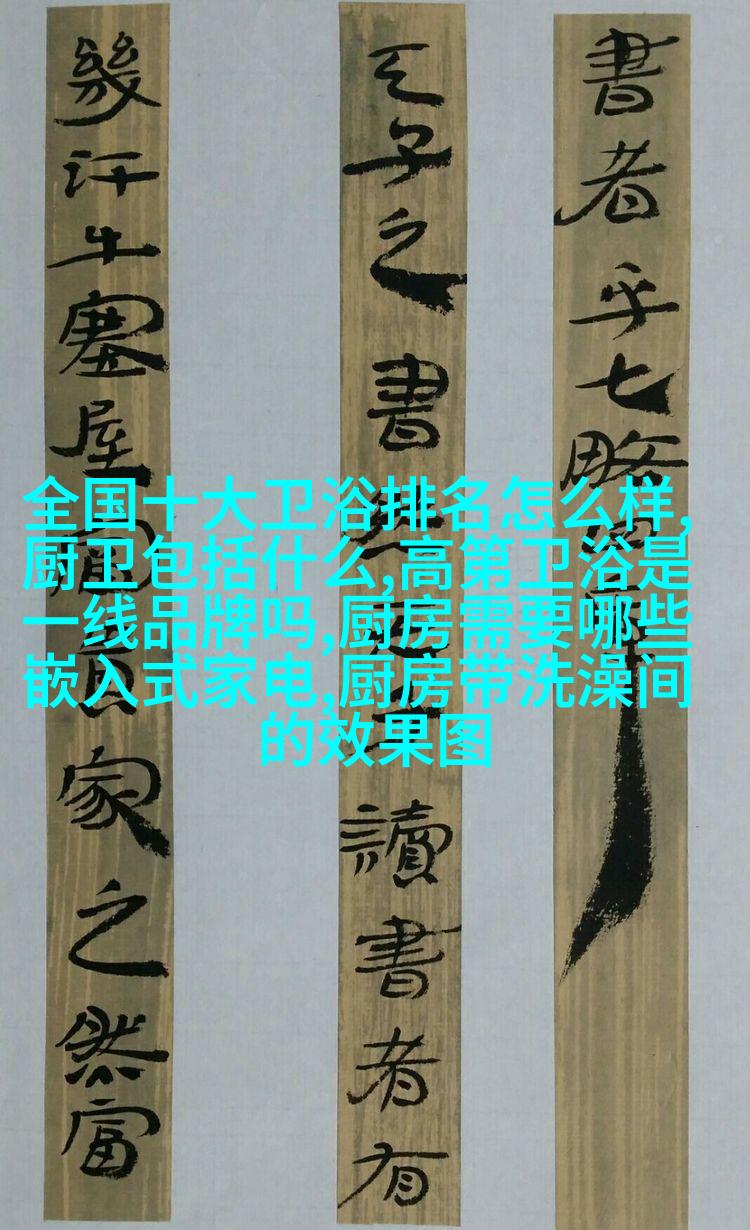 書者乎七略
天子之書然天子讀書者有
幾汗牛塞屋富貴家之然富
全国十大卫浴排名怎么样,
厨卫包括什么,高第卫浴是
一线品牌吗,厨房需要哪些
嵌入式家电,厨房带洗澡间
的效果图